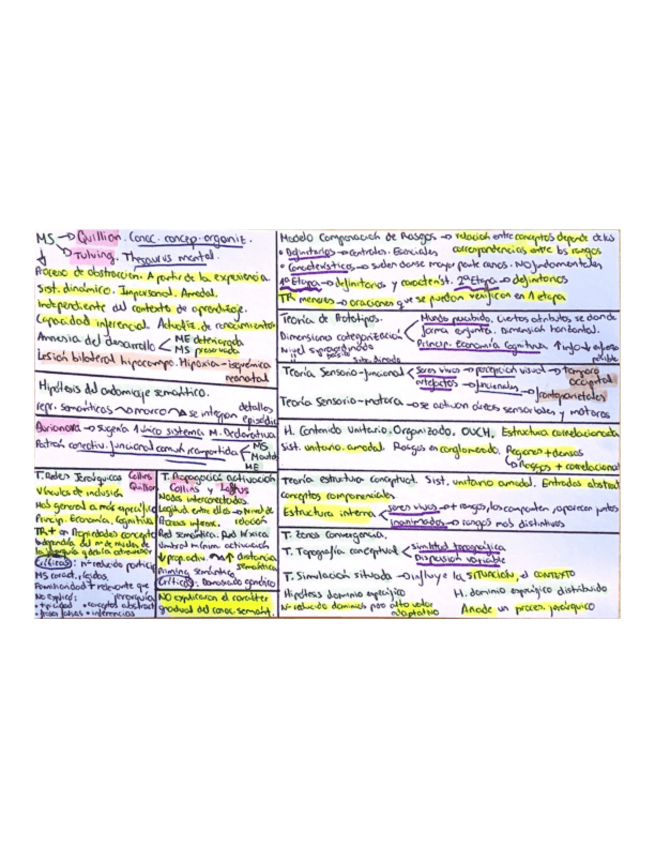 MS → Quillian. Conoc. concep. organiz.
Tulving. Thesaurus mental.
Proceso de abstracción. A partir de la experiencia
Sist. dinámico. Impersonal. Amodal.
Independiente del contexto de aprendizaje.
Capacidad inferencial. de conocimientos
Amnesia del desarrollo < ME deteriorada
MS preservada
Lesión bilateral hipocampo. Hipoxia-isquémica
neonatal
Hipótesis del andamiaje semántico.
repr. semánticas → marco → se integran detalles
episódic
→ sugería 1 único sistema M. Declarativa
Patrón conectiv. funcional común compartida < MS
ME
T. Redes Jerárquicas Collins
Quillian
Vínculos de inclusión
Más general a más específico
Princip. Economía. Cognitiva
TR + en Propiedades concepto
dependía del nº de nudos de
la jerarquía q debía atravesar
Críticas: nº reducido particip
MS caract. rígidas
Familiaridad + relevante que
jerarquía
No explicó:
• tipicidad • conceptos abstract
• frases falsas • inferencias
T. Propagación activación
Collins y Loftus
Nodos interconectados.
Longitud entre ellos → nivel de
relación
Proceso inferenc.
Red semántica. Red léxica.
Umbral mínim. activación
↓ prop. activ. → ↑ distancia
semántica
Priming semántico
Críticas: Demasiado genérico
NO explicaron el carácter
gradual del conoc. semánt.
Modelo Comparación de Rasgos → relación entre conceptos depende de las
correspondencias entre los rasgos
• Definitorios → centrales. Esenciales
• Característicos → suelen darse mayor parte casos. NO fundamentales
1ª Etapa → definitorios y característ. 2ª Etapa → definitorios
TR menores → oraciones que se puedan verificar en 1 etapa
Teoría de Prototipos.
Mundo percibido. Ciertos atributos se dan de
forma conjunta. Dimensión horizontal.
Dimensiones categorización
Princip. Economía Cognitiva ↑ info ↓ esfuerzo
posible
Nivel supraordinado
básico
Subordinado
Teoría Sensorio-funcional < seres vivos → percepción visual → temporo
occipital
artefactos → funcionales → frontoparietales
Teoría Sensorio-motora → se activan áreas sensoriales y motoras
H. Contenido Unitario. Organizado. OUCH. Estructura correlacionada
Sist. unitario. amodal. Rasgos en conglomerado. Regiones + densas
↳ Rasgos + correlacionad
Teoría estructura conceptual. Sist. unitario amodal. Entradas abstract
conceptos componenciales
Estructura interna < seres vivos → + rasgos, los comparten, aparecen juntos
inanimados → rasgos más distintivos
T. Zonas convergencia.
T. Topografía conceptual < similitud topográfica
Dispersión variable
T. Simulación situada → influye la SITUACIÓN, el CONTEXTO
Hipótesis dominio específico
Nº reducido dominios por alto valor
adaptativo
H. dominio específico distribuido
Añade un proces. jerárquico